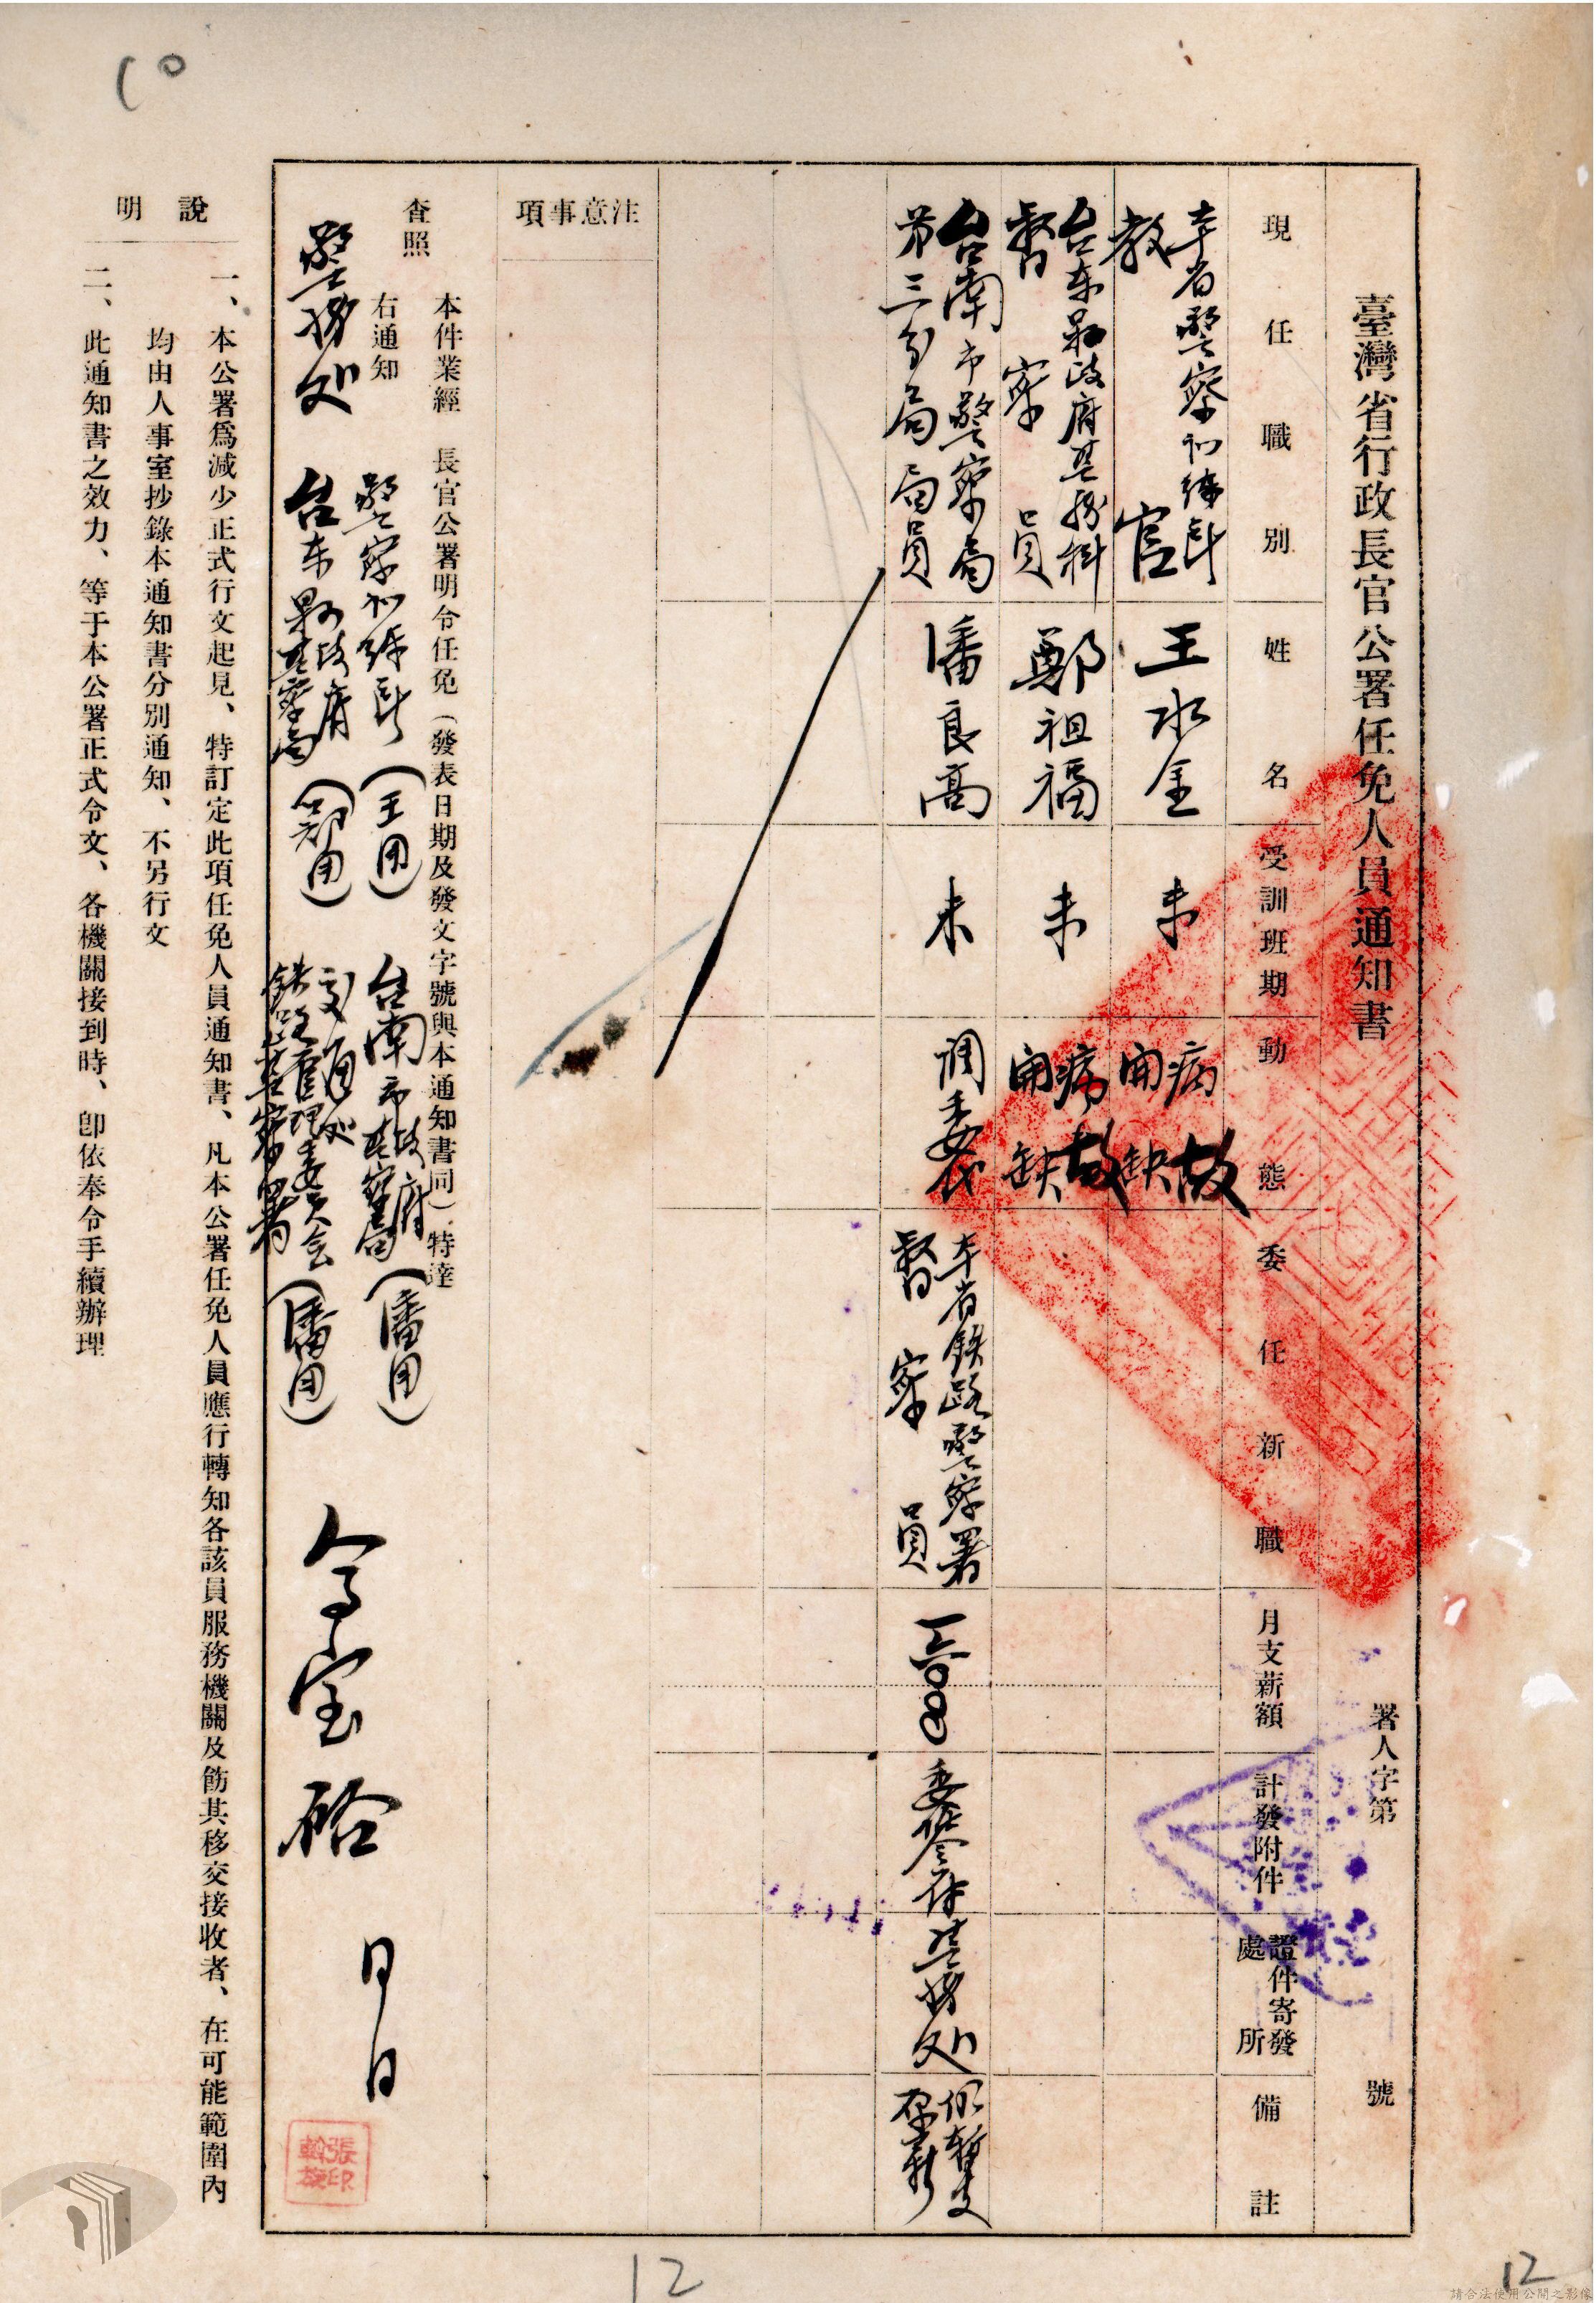 臺灣省行政長官公署任免人員通知書
署人字第 號
現任職別
姓名
受訓班期
動態
委任新職
月支薪額
計發附件
證件寄發處所
備註
本省警察訓練所
教官
王水金
未
病故
開缺
台东縣政府警務科
督察員
鄭祖福
未
病故
開缺
台南市警察局
第三分局局員
潘良高
未
調委代
本省鉄路警察署
督察員
委代令存警務処
仍暫支
原薪
注意事項
本件業經 長官公署明令任免(發表日期及發文字號與本通知書同)特達
查照
右通知
警務処
警察訓練所(王用)
台东縣政府警察局(鄭用)
台南市政府警察局(潘用)
交通処
鉄路管理委員会
鉄路警察署(潘用)
月 日
張印
說明
一、本公署爲減少正式行文起見、特訂定此項任免人員通知書、凡本公署任免人員應行轉知各該員服務機關及飭其移交接收者、在可能範圍內
均由人事室抄錄本通知書分別通知、不另行文
二、此通知書之效力、等于本公署正式令文、各機關接到時、卽依奉令手續辦理
10
12
12
請合法使用公開之影像